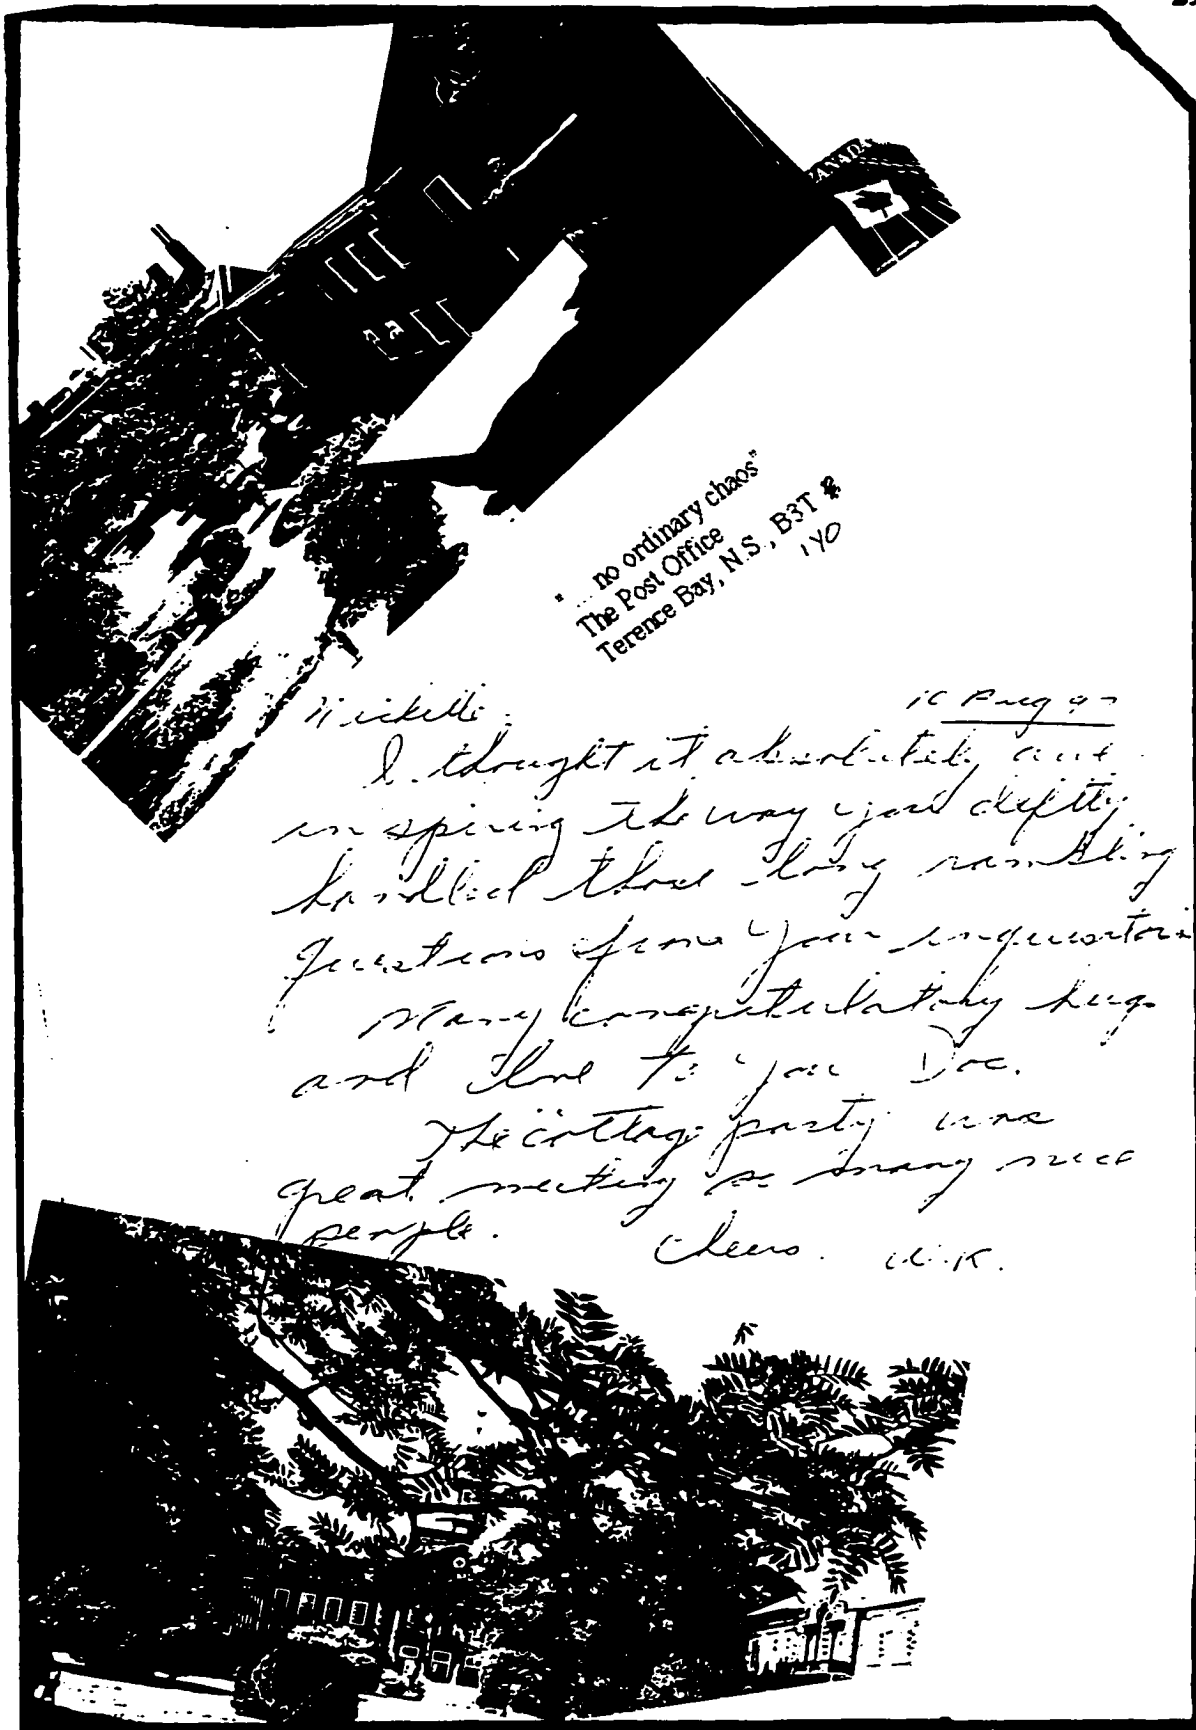 CANADA
"... no ordinary chaos"
The Post Office
Terence Bay, N.S., B3T
1Y0
Aug
I thought it absolutely awe
inspiring the way you deftly
handled those long rambling
questions from your inquisitors
Many congratulatory hugs
and love to you Doc.
The cottage party was
great meeting so many nice
people. Cheers.